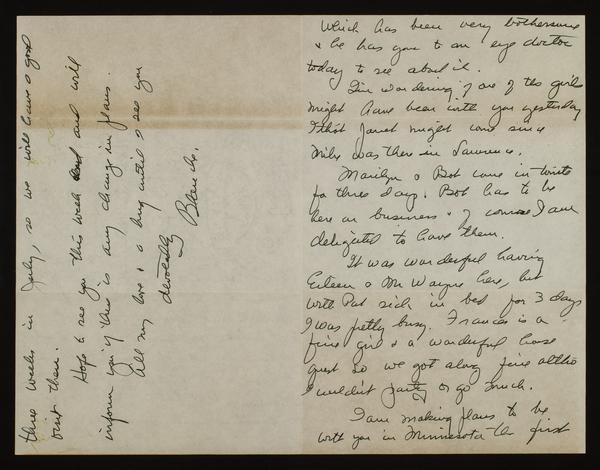 Which has been very bothersome
& he has gone to an eye doctor
today to see about it.
I'm wondering if one of the girls
might have been with you yesterday
I thot Janet might come since
Mike was there in Lawrence.
Marilyn & Bob come in tonite
for three days. Bob has to be
here on business & of course I am
delighted to have them.
It was wonderful having
Eileen & Mr Wayne here, but
with Pat sick in bed for 3 days
I was pretty busy. Frances is a
fine girl & a wonderful house
guest so we got along fine altho
I couldn't party or go much.
I am making plans to be
with you in Minnesota the first
three weeks in July, so we will have a good
visit then.
Hope to see you this week and will
inform you if there is any change in plans.
All my love & a hug until I see you
devotedly
Blanche.